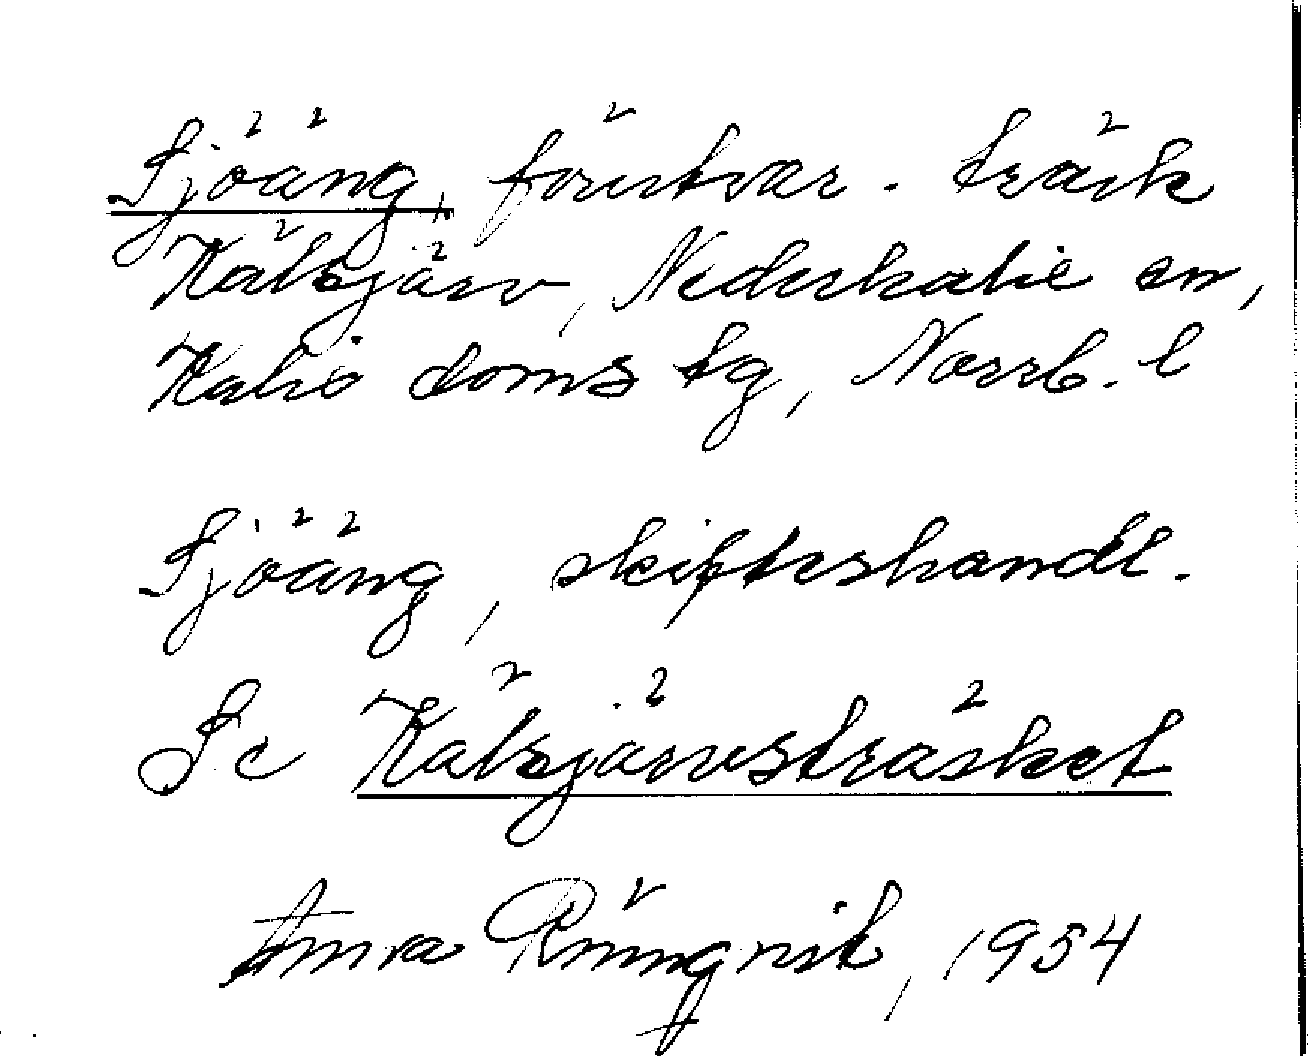 Sjöäng, förutvar. träsk
Kälsjärv, Nederkalix sn,
Kalix doms tg, Norrb. l
Sjöäng, skifteshandl.
Se Kälsjärvsträsket
Anna Rönnqvist, 1954